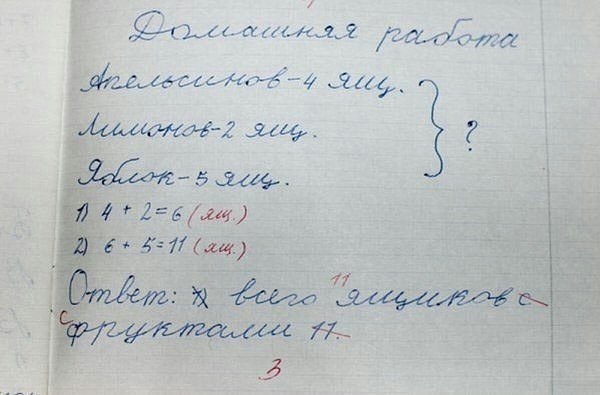 Домашняя работа
Апельсинов - 4 ящ.
Лимонов - 2 ящ.
Яблок - 5 ящ.
?
1) 4 + 2 = 6 (ящ.)
2) 6 + 5 = 11 (ящ.)
Ответ: всего 11 ящиков с
с фруктами 11.
3